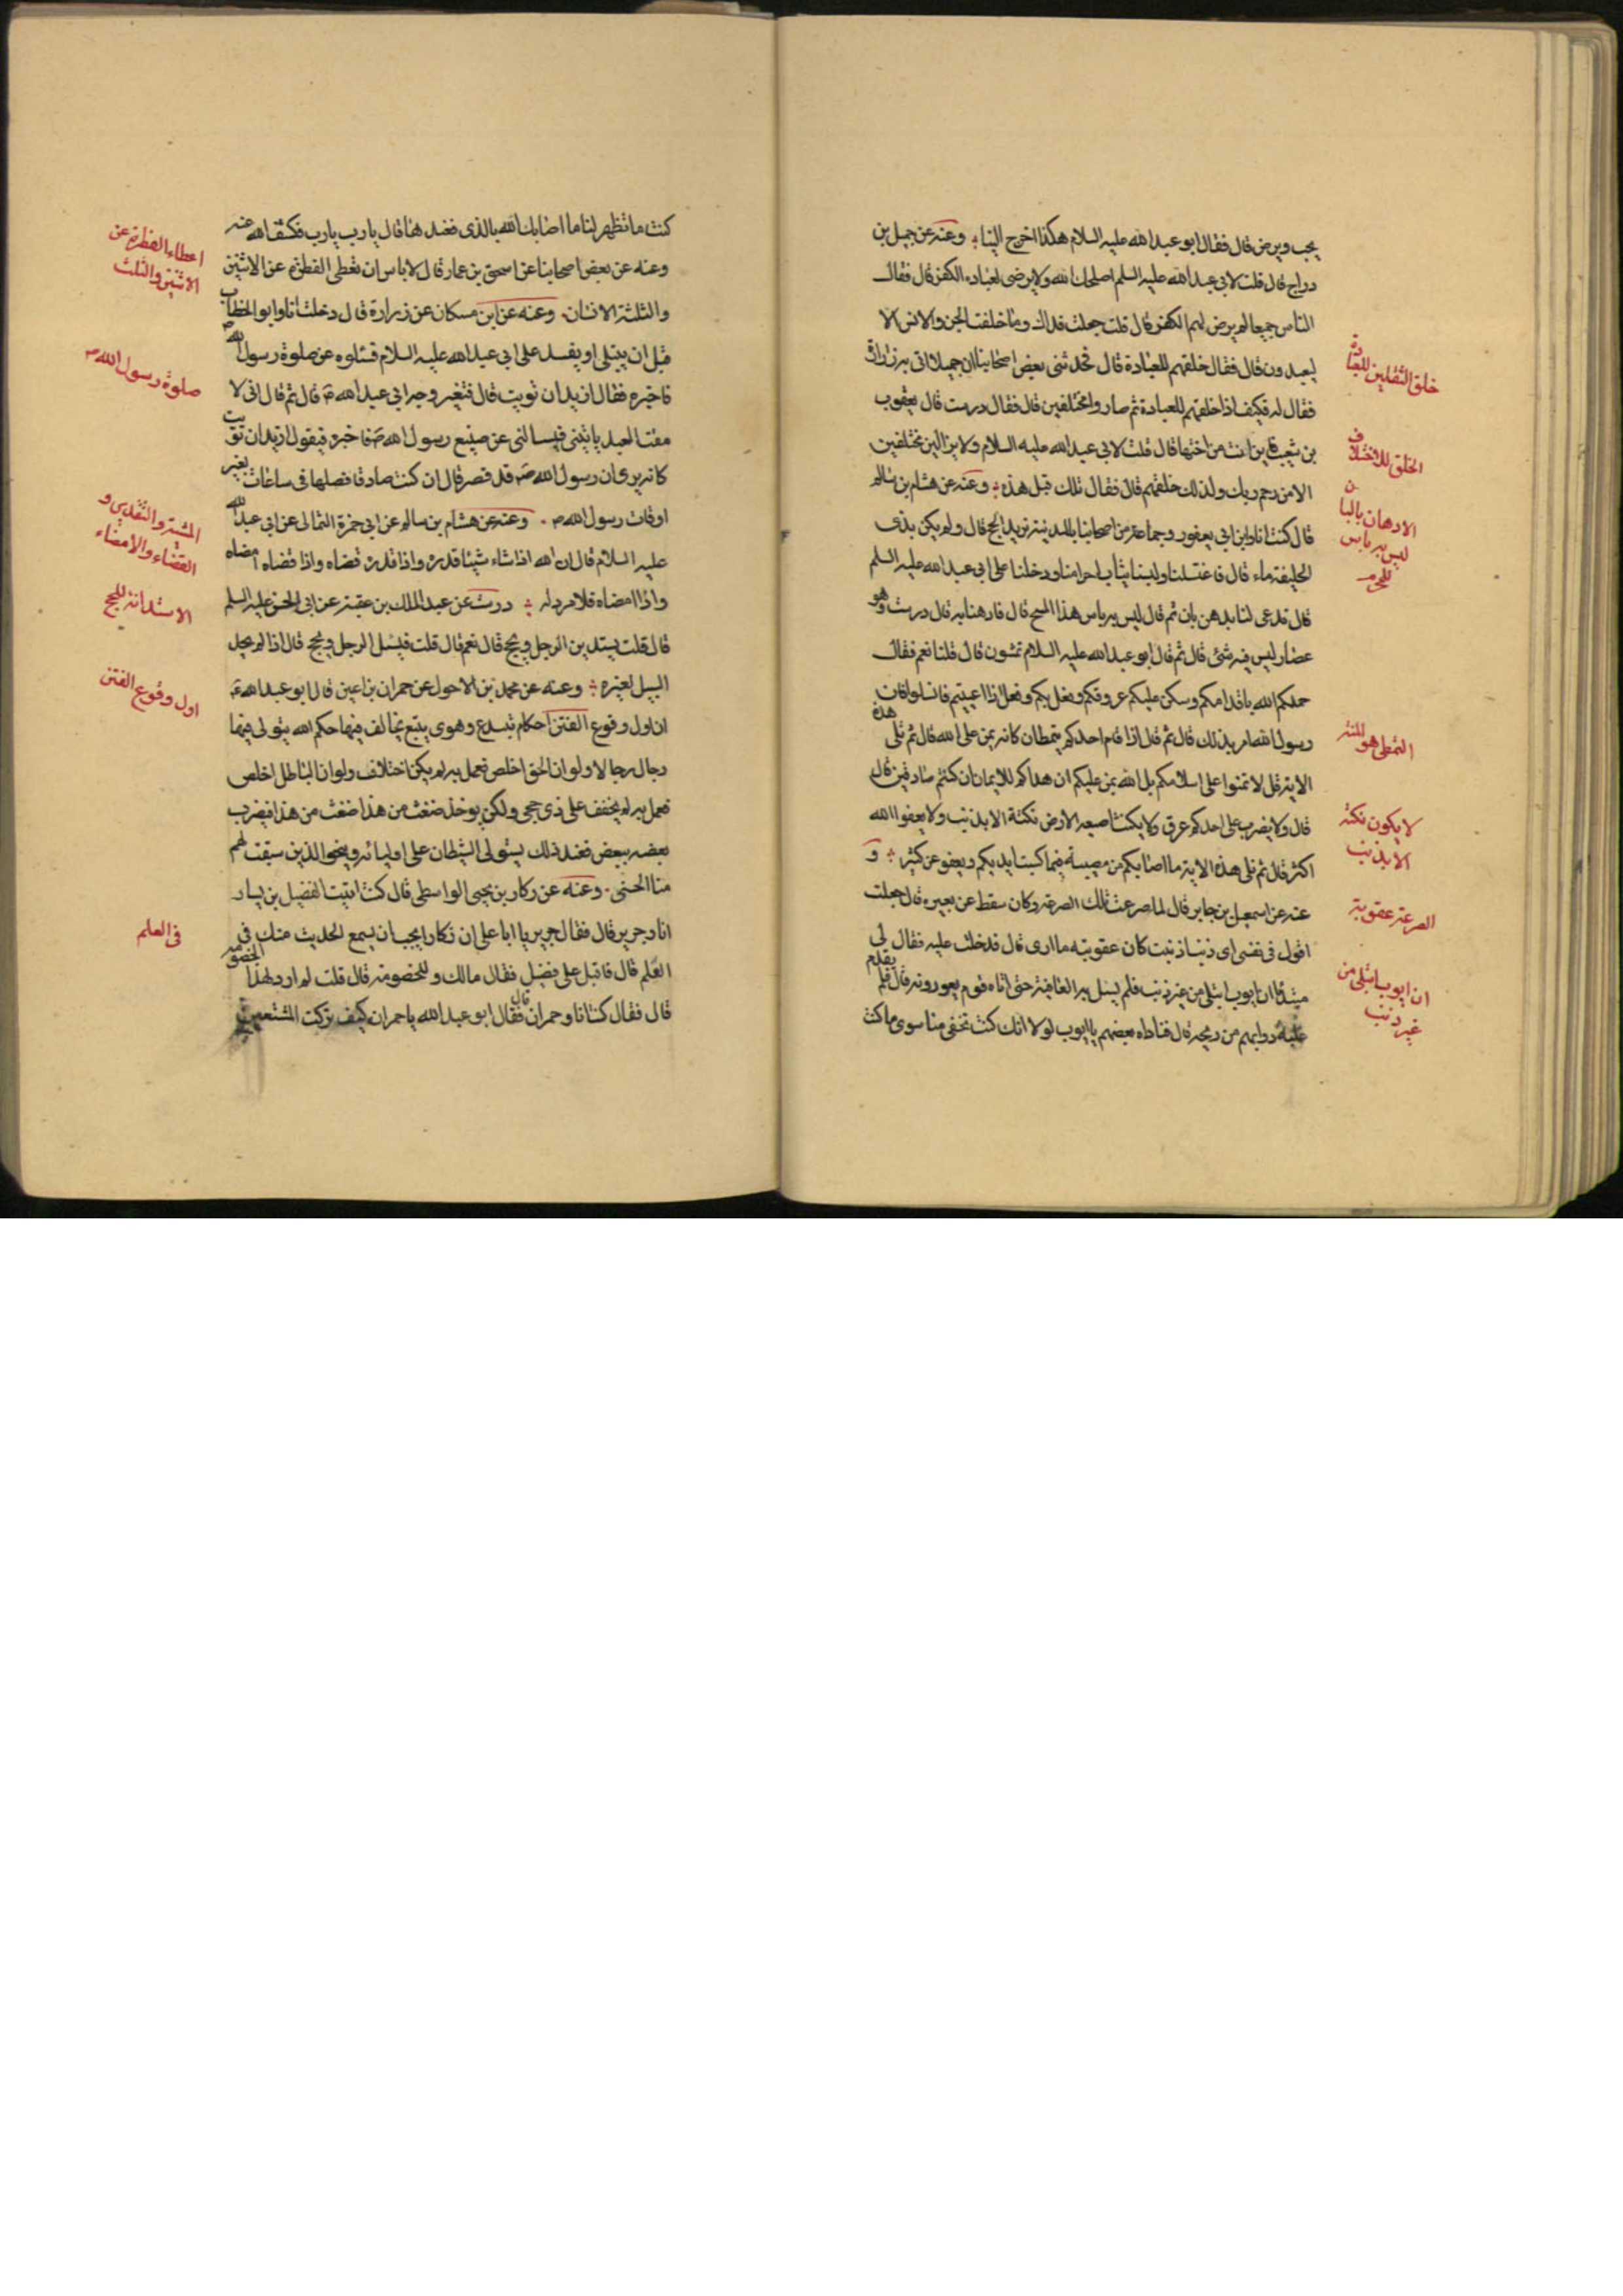 يحب ويرضى قال فقال ابو عبدالله عليه السلام هكذا اخرج الينا وعنه عن جميل بن
دراج قال قلت لابى عبدالله عليه السلم اصلحك الله ولا يرضى لعباده الكفر قال فقال
الناس جميعا لم يرض لهم الكفر قال قلت جعلت فداك وما خلقت الجن والانس الا
ليعبدون قال فقال خلقهم للعبادة قال فحدثنى بعض اصحابنا ان جميلا اتى به زرارة
فقال له فكيف اذا خلقهم للعبادة ثم صاروا مختلفين قال فقال درست قال يعقوب
بن شعيب فاين انت من اختها قال قلت لابى عبدالله عليه السلام ولا يزالون مختلفين
الا من رحم ربك ولذلك خلقهم قال فقال تلك قبل هذه وعنه عن هشام بن سالم
قال كنت انا وابن ابى يعفور وجماعة من اصحابنا بالمدينة نريد الحج قال ولم يكن بذى
الحليفة ماء قال فاغتسلنا ولبسنا ثياب احرامنا ودخلنا على ابى عبدالله عليه السلم
قال فدعى لنا بدهن بان ثم قال ليس به باس هذا المسيح قال فادهنا به قال درست وهو
عصار ليس فيه شئ قال ثم قال ابو عبدالله عليه السلام تمشون قال قلنا نعم فقال
حملكم الله باقدامكم وسكن عليكم عروقكم وفعل بكم وفعل اذا اعييتم فانسلوا فان
رسول الله امر بذلك قال ثم قال اذا قام احدكم يتمطان كانه يمن على الله قال ثم تلى هذه
الاية قل لا تمنوا على اسلامكم بل الله يمن عليكم ان هداكم للايمان ان كنتم صادقين قال
قال ولا يضرب على احدكم عرق ولا ينكت اصبعه الارض نكتة الا بذنب ولا يعفو الله
اكثر قال ثم تلى هذه الاية ما اصابكم من مصيبة فبما كسبت ايديكم ويعفو عن كثير و
عنه عن اسمعيل بن جابر قال لما صرعت تلك الصرعة وكان سقط عن بعيره قال جعلت
اقول فى نفسى اى ذنب اذنبت كان عقوبته ما ارى قال فدخلت عليه فقال لى
مبتدئا ان ايوب ابتلى من غير ذنب فلم يسل ربه العافية حتى اتاه قوم يعودونه قال فلم يقدم
عليه دوابهم من ريحه قال فناداه بعضهم يا ايوب لولا انك كنت تخفى منا سوى ما كنت
خلق الثقلين للعبادة
الخلق للاختلاف
الادهان بالبان
ليس به باس
للمحرم
التمطى هو المنة
لا يكون نكتة
الا بذنب
الصرعة عقوبة
ان ايوب ابتلى من
غير ذنب
كنت ما تظهر لنا ما اصابك الله بالذى فعند هنا قال يا رب يا رب فكشف الله عنه
وعنه عن بعض اصحابنا عن اسحق بن عمار قال لا باس ان تعطى الفطرة عن الاثنين
والثلثة الانسان وعنه عن ابن مسكان عن زرارة قال دخلت انا وابو الخطاب
قبل ان يبتلى او يفسد على ابى عبدالله عليه السلام فسئلوه عن صلوة رسول الله
فاخبره فقال ازيد ان قويت قال فتغير وجه ابى عبدالله قال ثم قال انى لا
مقت العبد ياتينى فيسالنى عن صنيع رسول الله فاخبره فيقول ازيد ان قويت
كانه يرى ان رسول الله قد قصر قال ان كنت صادقا فصلها فى ساعات بغير
اوقات رسول الله وعنه عن هشام بن سالم عن ابى حمزة الثمالى عن ابى عبدالله
عليه السلام قال ان الله اذا شاء شيئا قدره واذا قدره قضاه واذا قضاه امضاه
واذا امضاه فلا مرد له درست عن عبد الملك بن عقبة عن ابى الحسن عليه السلم
قال قلت يستدين الرجل ويحج قال نعم قال قلت فيسئل الرجل ويحج قال اذا لم يجد
السبيل لغيره وعنه عن محمد بن الاحول عن حمران بن اعين قال ابو عبدالله
ان اول وقوع الفتن احكام تبتدع وهوى يتبع يخالف فيها حكم الله يتولى فيها
رجال رجالا ولو ان الحق اخلص فعمل به لم يكن اختلاف ولو ان الباطل اخلص
فعمل به لم يخفف على ذى حجى ولكن يوخذ ضغث من هذا ضغث من هذا فيضرب
بعضه ببعض فعند ذلك يستولى الشيطان على اوليائه وينجو الذين سبقت لهم
منا الحسنى وعنه عن زكار بن يحيى الواسطى قال كنت اتيت الفضيل بن يسار
انا وجرير قال فقال جرير يا ابا على ان زكارا يحب ان يسمع الحديث منك فى
العلم قال فاقبل على فضيل فقال مالك وللخصومة قال قلت لم ارد لهذا الخصومة
قال فقال كنت انا وحمران قال فقال ابو عبدالله يا حمران كيف تركت المتشعبين
اعطاء الفطرة عن
الاثنين والثلث
صلوة رسول الله
المشية والتقدير و
القضاء والامضاء
الاستدانة للحج
اول وقوع الفتن
فى العلم